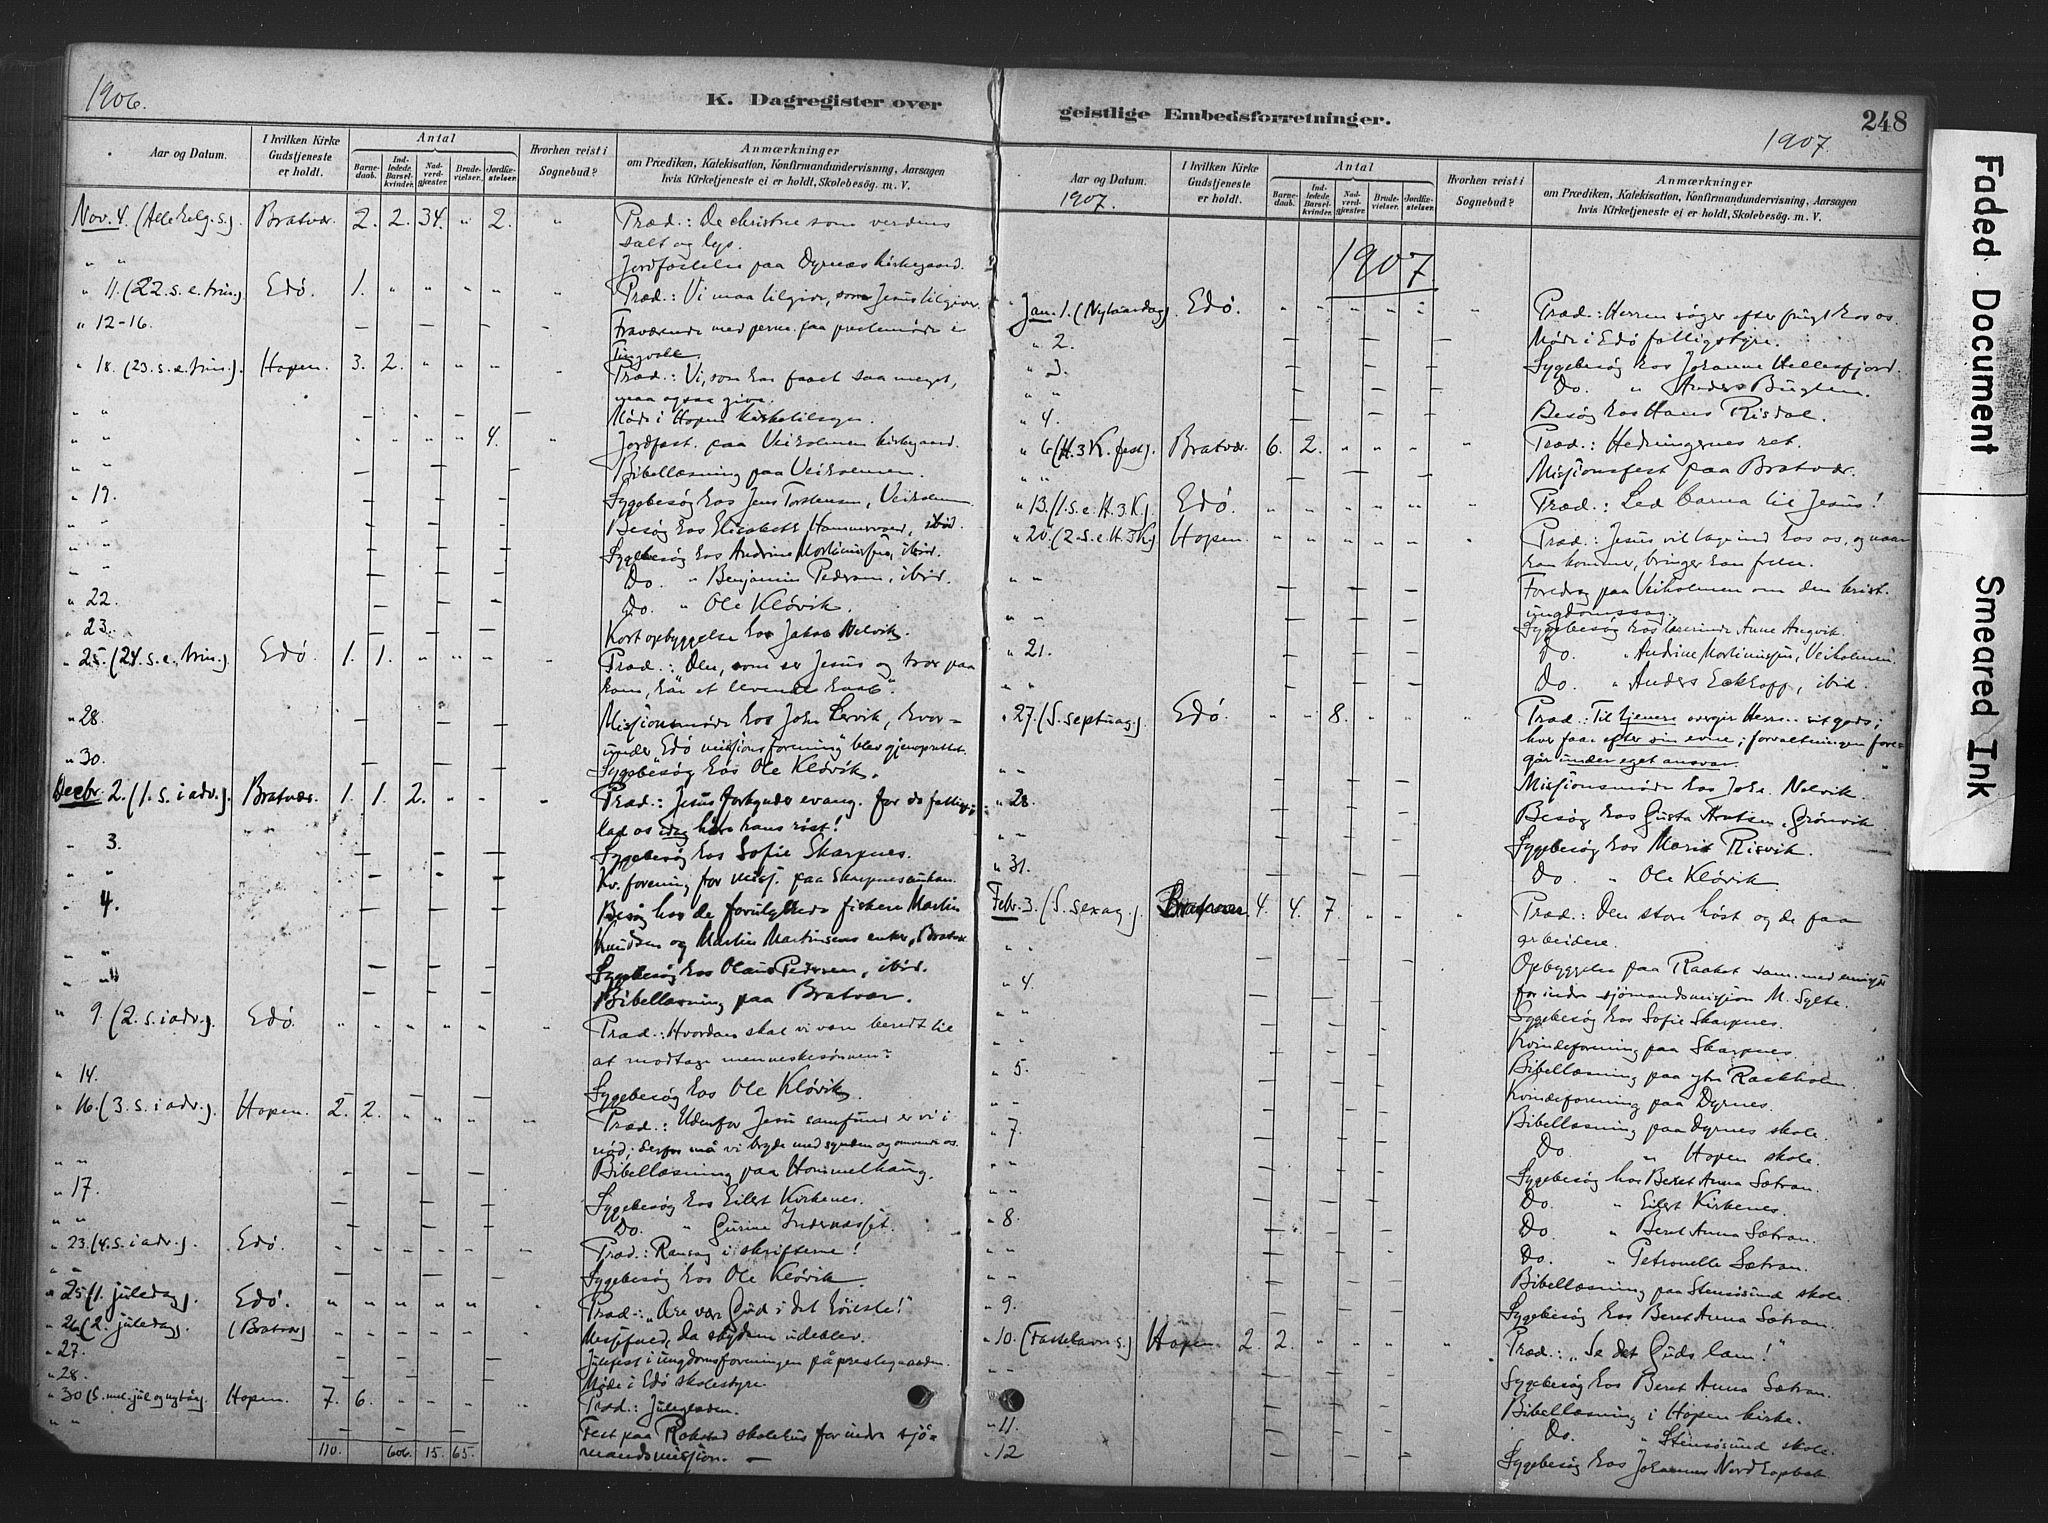 1906.
K. Dagregister over
Aar og Datum. I hvilken Kirke Gudstjeneste er holdt. Antal Barnedaab. Indledede Barselkvinder. Nadverdgjester. Brudevielser. Jordfæstelser. Hvorhen reist i Sognebud? Anmærkninger
om Prædiken, Katekisation, Konfirmandundervisning, Aarsagen
hvis Kirketjeneste ei er holdt, Skolebesøg. m. V.
Nov. 4. (Alle helg. s.) Bratvær. 2. 2. 34. " 2. " Præd.: De christne som verdens
salt og lys.
" " Jordfæstelse paa Dyrnæs kirkegaard.
" 11. (22. s. e. trin.) Edø. 1. " " " " " Præd.: Vi maa tilgive, som Jesus tilgiver.
" 12-16. Fraværende med perm. paa prestemøde i
Tingvoll.
" 18. (23. s. e. trin.). Hopen. 3. 2. " " " " Præd.: Vi, som har faaet saa meget,
maa ogsaa give.
" " Møde i Hopen kirketilsyn.
" " " " " " 4. " Jordfæst. paa Veiholmen kirkegaard.
" " Bibellæsning paa Veiholmen.
" 19. Sygebesøg hos Jens Torstensen, Veiholmen
" " Besøg hos Elisabeth Hammervold, ibid.
" " Sygebesøg hos Andrine Mortinussen, ibid.
" " Do. " Benjamin Pedersen, ibid.
" 22. Do. " Ole Kløvik.
" 23. Kort opbyggelse hos Jakob Nelvik.
" 25. (24. s. e. trin.). Edø. 1. 1. " " " " Præd.: Den, som ser Jesus og tror paa
ham, har et levende haab".
" 28. Missionsmøde hos John Lervik, hvor-
under Edø missionsforening" blev gjenoprettet.
" 30. Sygebesøg hos Ole Kløvik.
Decbr. 2. (1. s. i adv.). Bratvær. 1. 1. 2. " " " Præd.: Jesus forkynder evang. for de fattige;
lad os idag høre hans røst!
" 3. Sygebesøg hos Sofie Skarpnes.
" " Kv. forening for miss. paa Skarpnes
" 4. Besøg hos de forulykkede fiskere Martin
Knudsen og Martin Martinsens enker, Bratvær
" " Sygebesøg hos Olaus Pedersen, ibid.
" " Bibellæsning paa Bratvær.
" 9. (2. s. i adv.). Edø. " " " " " " Præd.: Hvordan skal vi være beredt til
at modtage menneskesønnen?
" 14. Sygebesøg hos Ole Kløvik.
" 16. (3. s. i adv.). Hopen. 2. 2. " " " " Præd.: Udenfor Jesu samfund er vi i
nød; derfor må vi bryde med synden og omvende os.
" " Bibellæsning paa Hommelhaug.
" 17. Sygebesøg hos Eilert Kirkenes.
" " Do. " Gurine Indernæsset.
" 23. (4. s. i adv.). Edø. " " " " " " Præd.: Ransag i skrifterne!
" " Sygebesøg hos Ole Kløvik.
" 25 (1. juledag). Edø. " " " " " " Præd.: "Ære vær Gud i det høieste!"
" 26 (2. juledag). (Bratvær) Messefald, da skydsen udeblev.
" 27. Julefest i ungdomsforeningen på prestegaarden.
" 28. Møde i Edø skolestyre
" 30 (S. mel. jul og nytår). Hopen. 7. 6. " " " " Præd.: Juleglæden.
" " Fest paa Rokstad skolehus for indre sjø-
110. 606. 15. 65. mandsmission. —
geistlige Embedsforretninger. 248
1907.
Aar og Datum. I hvilken Kirke Gudstjeneste er holdt. Antal Barnedaab. Indledede Barselkvinder. Nadverdgjester. Brudevielser. Jordfæstelser. Hvorhen reist i Sognebud? Anmærkninger
om Prædiken, Katekisation, Konfirmandundervisning, Aarsagen
hvis Kirketjeneste ei er holdt, Skolebesøg. m. V.
1907.
1907
Jan. 1. (Nytaarsdag). Edø. " " " " " " Præd.: Herren søger efter frugt hos os.
" 2. Møde i Edø fattigstyre.
" 3. Sygebesøg hos Johanne Hellesfjord.
" " Do. " Anders Bugten.
" 4. Besøg hos Hans Risdal.
" 6 (H. 3 K. fest). Bratvær. 6. 2. " " " " Præd.: Hedningernes ret.
" " Missionsfest paa Bratvær.
" 13. (1. s. e. H. 3 K.). Edø. " " " " " " Præd.: Led barna til Jesus!
" 20. (2. s. e. H. 3 K.) Hopen. " " " " " " Præd.: Jesus vil tage ind hos os, og naar
han kommer, bringer han frelse.
" " Foredrag paa Veiholmen om den krist.
ungdomssag.
" " Sygebesøg hos lærerinde Anne Angvik.
" 21. Do. " Andrine Mortinussen, Veiholmen.
" " Do. " Anders Eckhoff, ibid.
" 27. (S. septuag.). Edø. " " 8. " " " Præd.: Til tjenere overgir Herren sit gods;
hver faar efter sin evne; forvaltningen fore-
går under eget ansvar.
" " Missionsmøde hos Joh. Nelvik.
" 28. Besøg hos Gusta Knutsen, Grønvik.
" " Sygebesøg hos Marit Risvik.
" 31. Do. " Ole Kløvik.
Febr. 3. (S. sexag.). Bratvær 4. 4. 7. " " " Præd.: Den store høst og de faa
arbeidere.
" " Opbyggelse paa Raaket sam. med emissær
for indre sjømandsmission M. Sylte.
" 4. Sygebesøg hos Sofie Skarpnes.
" " Kvindeforening paa Skarpnes.
" " Bibellæsning paa ytre Raakholm.
" 5. Kvindeforening paa Dyrnes.
" " Bibellæsning paa Dyrnes skole.
" 7. Do. " Hopen skole.
" " Sygebesøg hos Beret Anna Sætran.
" " Do. " Eilert Kirkenes.
" 8. Do. " Beret Anna Sætran.
" " Do. " Petronelle Sætran.
" " Bibellæsning paa Stensøsund skole.
" 9. Sygebesøg hos Beret Anna Sætran.
" 10. (Fastelavns s.) Hopen. 2. 2. " " " " Præd.: "Se det Guds lam!"
" " Sygebesøg hos Beret Anna Sætran.
" " Bibellæsning i Hopen kirke.
" 11. Do. " Stensøsund skole.
" 12 Sygebesøg hos Johannes Nordhopstad
Faded Document
Smeared Ink